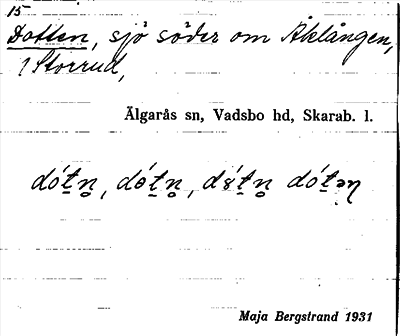 15
Dotten, sjö söder om Åklången,
1 Storrud,
Älgarås sn, Vadsbo hd, Skarab. l.
dót̠n̥, dót̠n̥, dót̠n̥ dót̠ən
Maja Bergstrand 1931